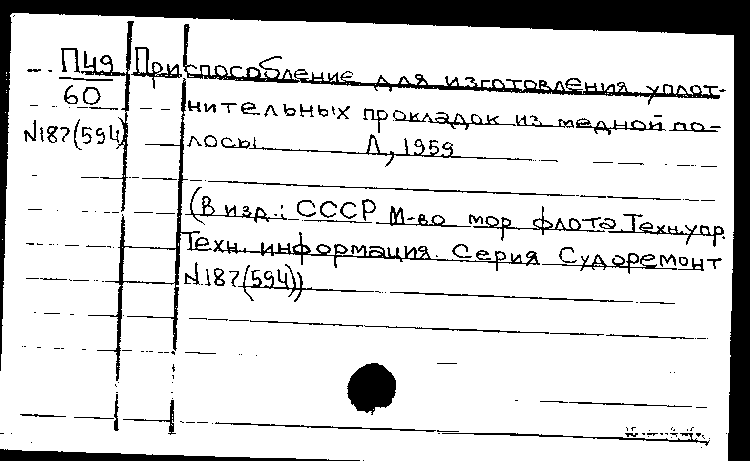 П49 Приспособление для изготовления уплот-
60
нительных прокладок из медной по-
N187(594) лосы Л, 1959
(В изд.: СССР. М-во мор флота. Техн. упр.
Техн. информация. Серия Судоремонт
N187(594))